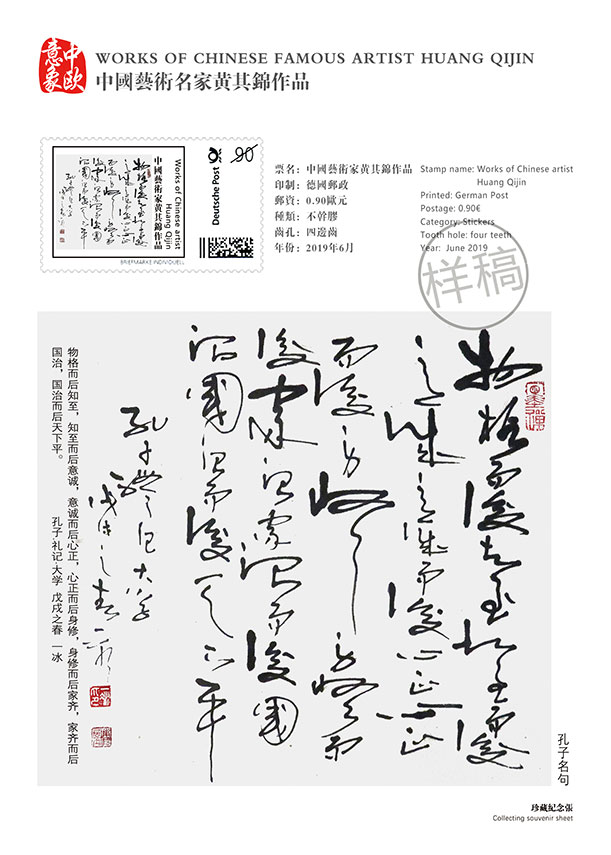 中欧
意象
WORKS OF CHINESE FAMOUS ARTIST HUANG QIJIN
中國藝術名家黄其錦作品
Works of Chinese Artist
Huang Qijin
中國藝術家黄其錦作品
Deutsche Post
90
BRIEFMARKE INDIVIDUELL
票名：中國藝術家黄其錦作品
印制：德國郵政
郵資：0.90歐元
種類：不幹膠
齒孔：四邊齒
年份：2019年6月
Stamp name: Works of Chinese artist
Huang Qijin
Printed: German Post
Postage: 0.90€
Category: Stickers
Tooth hole: four teeth
Year: June 2019
样稿
物格而後知至知至而後
意誠意誠而後心正心正
而後身修身修而
後家齊家齊而後國
治國治而後天下平
孔子礼记大学
戊戌之春一冰
物格而后知至，知至而后意诚，意诚而后心正，心正而后身修，身修而后家齐，家齐而后
国治，国治而后天下平。 孔子·礼记·大学 戊戌之春 一冰
孔子名句
珍藏紀念張
Collecting souvenir sheet